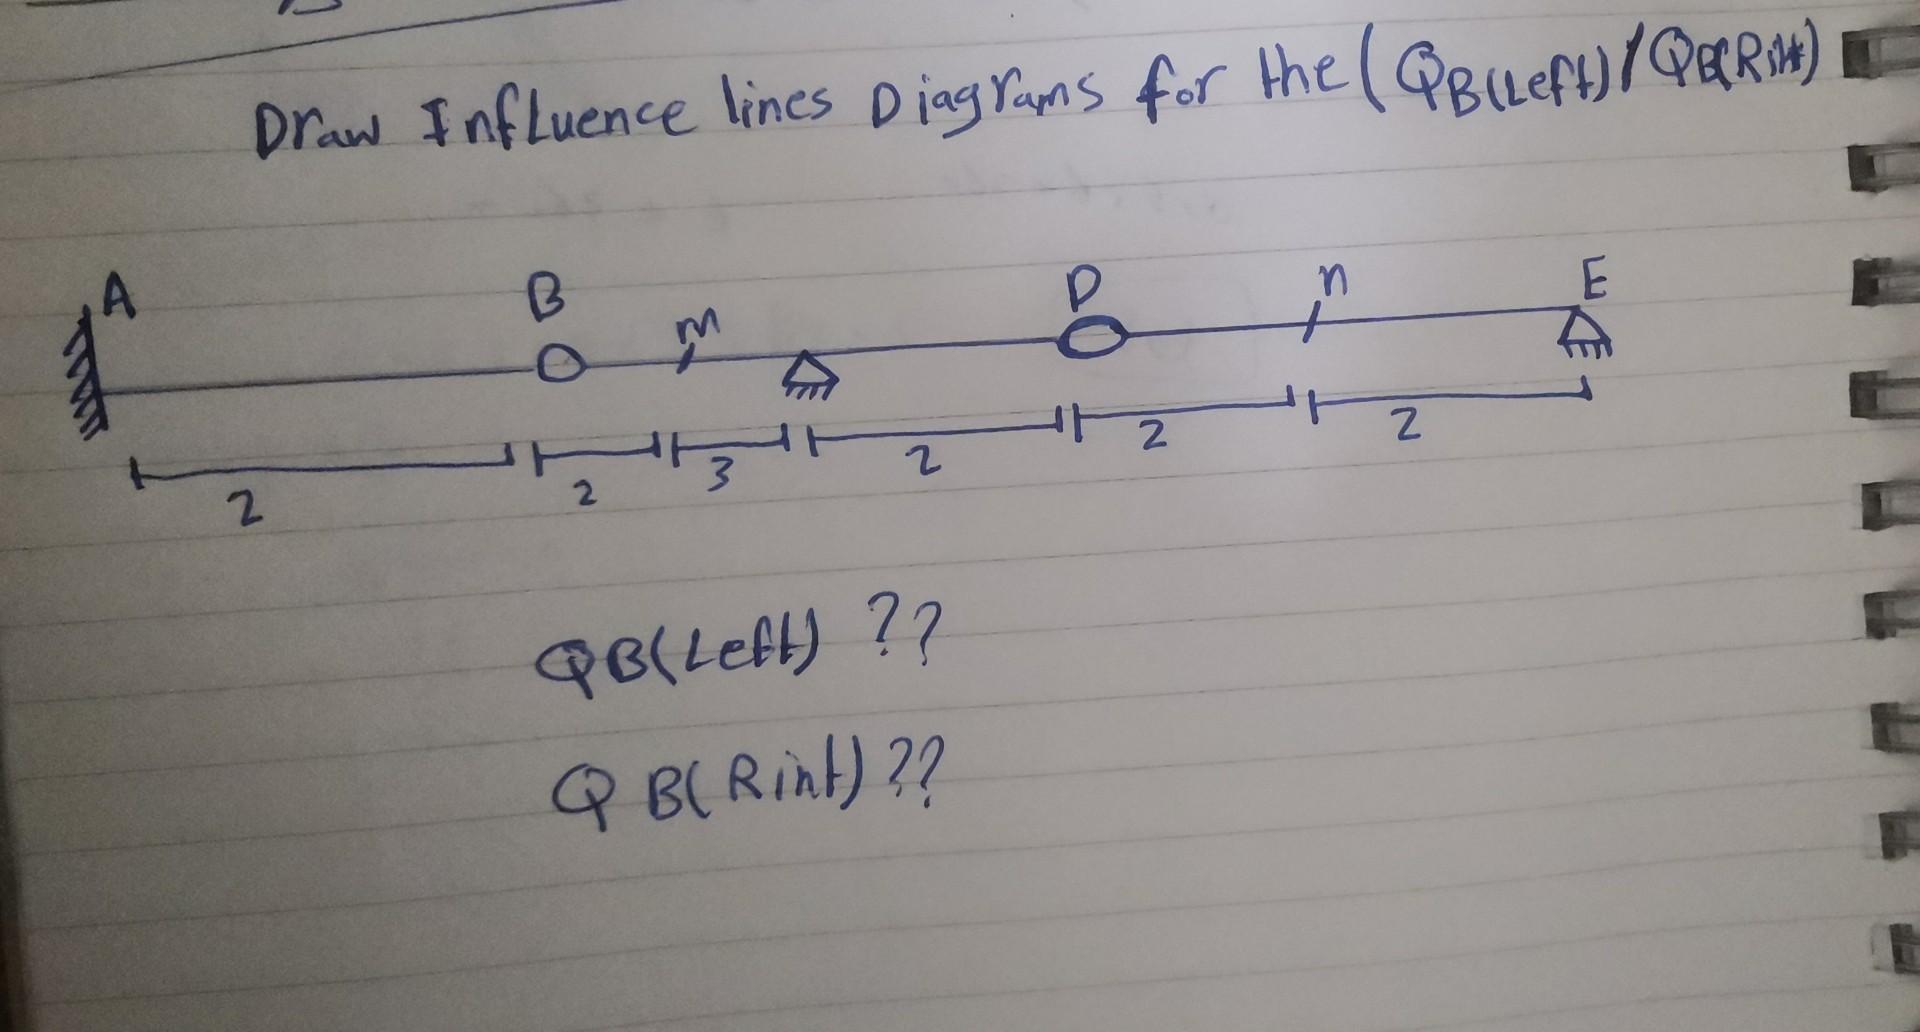 Draw Influence lines Diagrams for the (QB(Left) / QB(Rint)
A B m D n E
2 2 3 2 2 2
QB(Left) ??
QB(Rint) ??